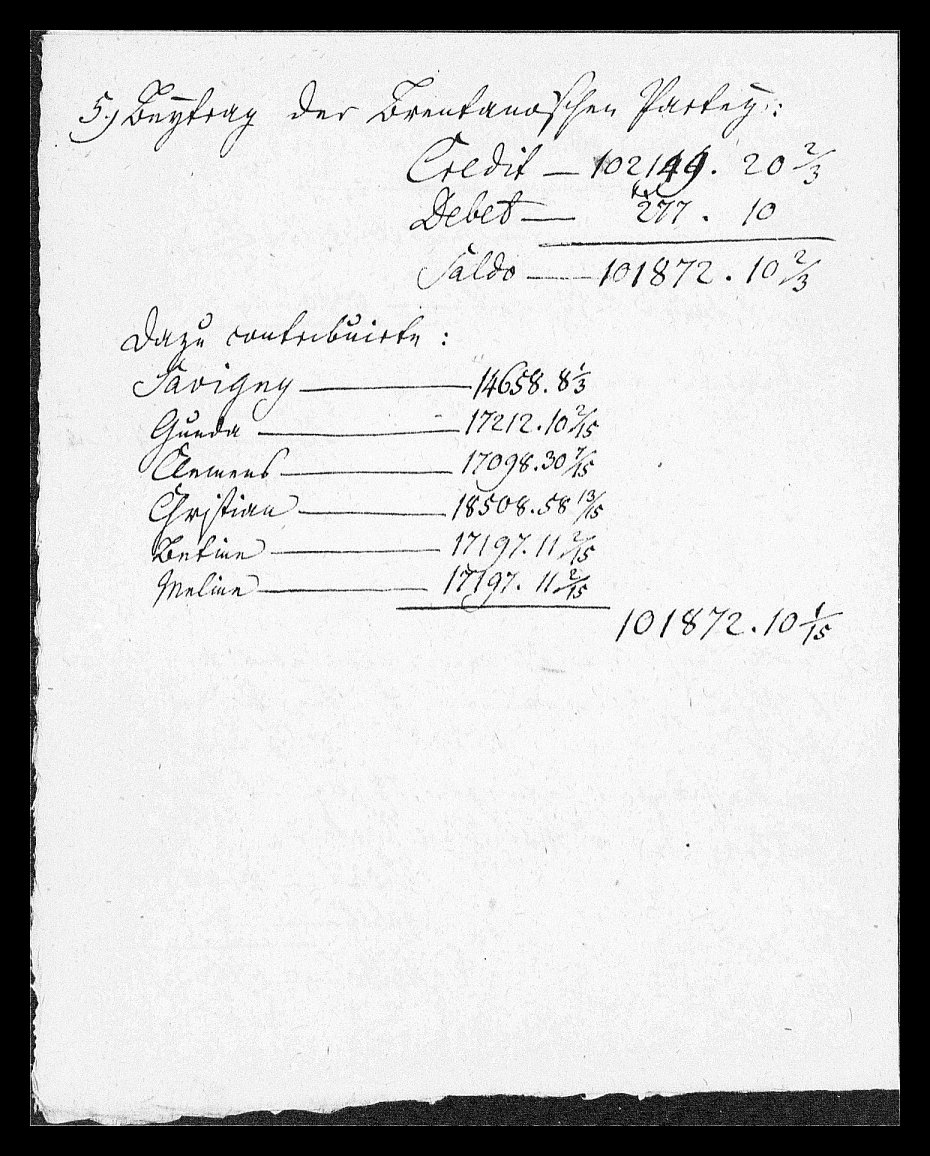 5.) Beytrag der Brentanoischen Partey:
Credit — 102149. 20 2/3
Debet — 277. 10
Saldo — 101872. 10 2/3
Dazu contribuirte:
Savigny — 14658. 8 1/3
Gunda — 17212. 10 2/15
Clemens — 17098. 30 7/15
Christian — 18508. 58 13/15
Betine — 17197. 11 2/15
Meline — 17197. 11 2/15
101872. 10 1/15